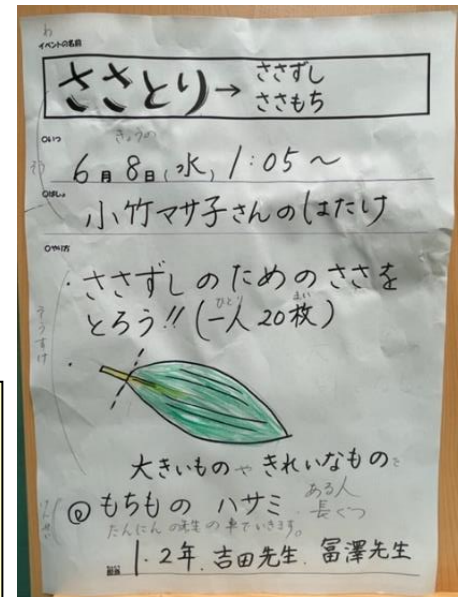 イベントの名前
ささとり→ ささずし
ささもち
○いつ
きょうの
6月8日(水) 1:05～
○ばしょ
小竹マサ子さんのはたけ
○やり方
・ささずしのためのささを
とろう!!(一人20枚)
ひとり まい
大きいものや きれいなものを
◎もちもの ハサミ ある人
長ぐつ
たんにんの先生の車でいきます。
担当 1・2年、吉田先生、冨澤先生
そうすけ